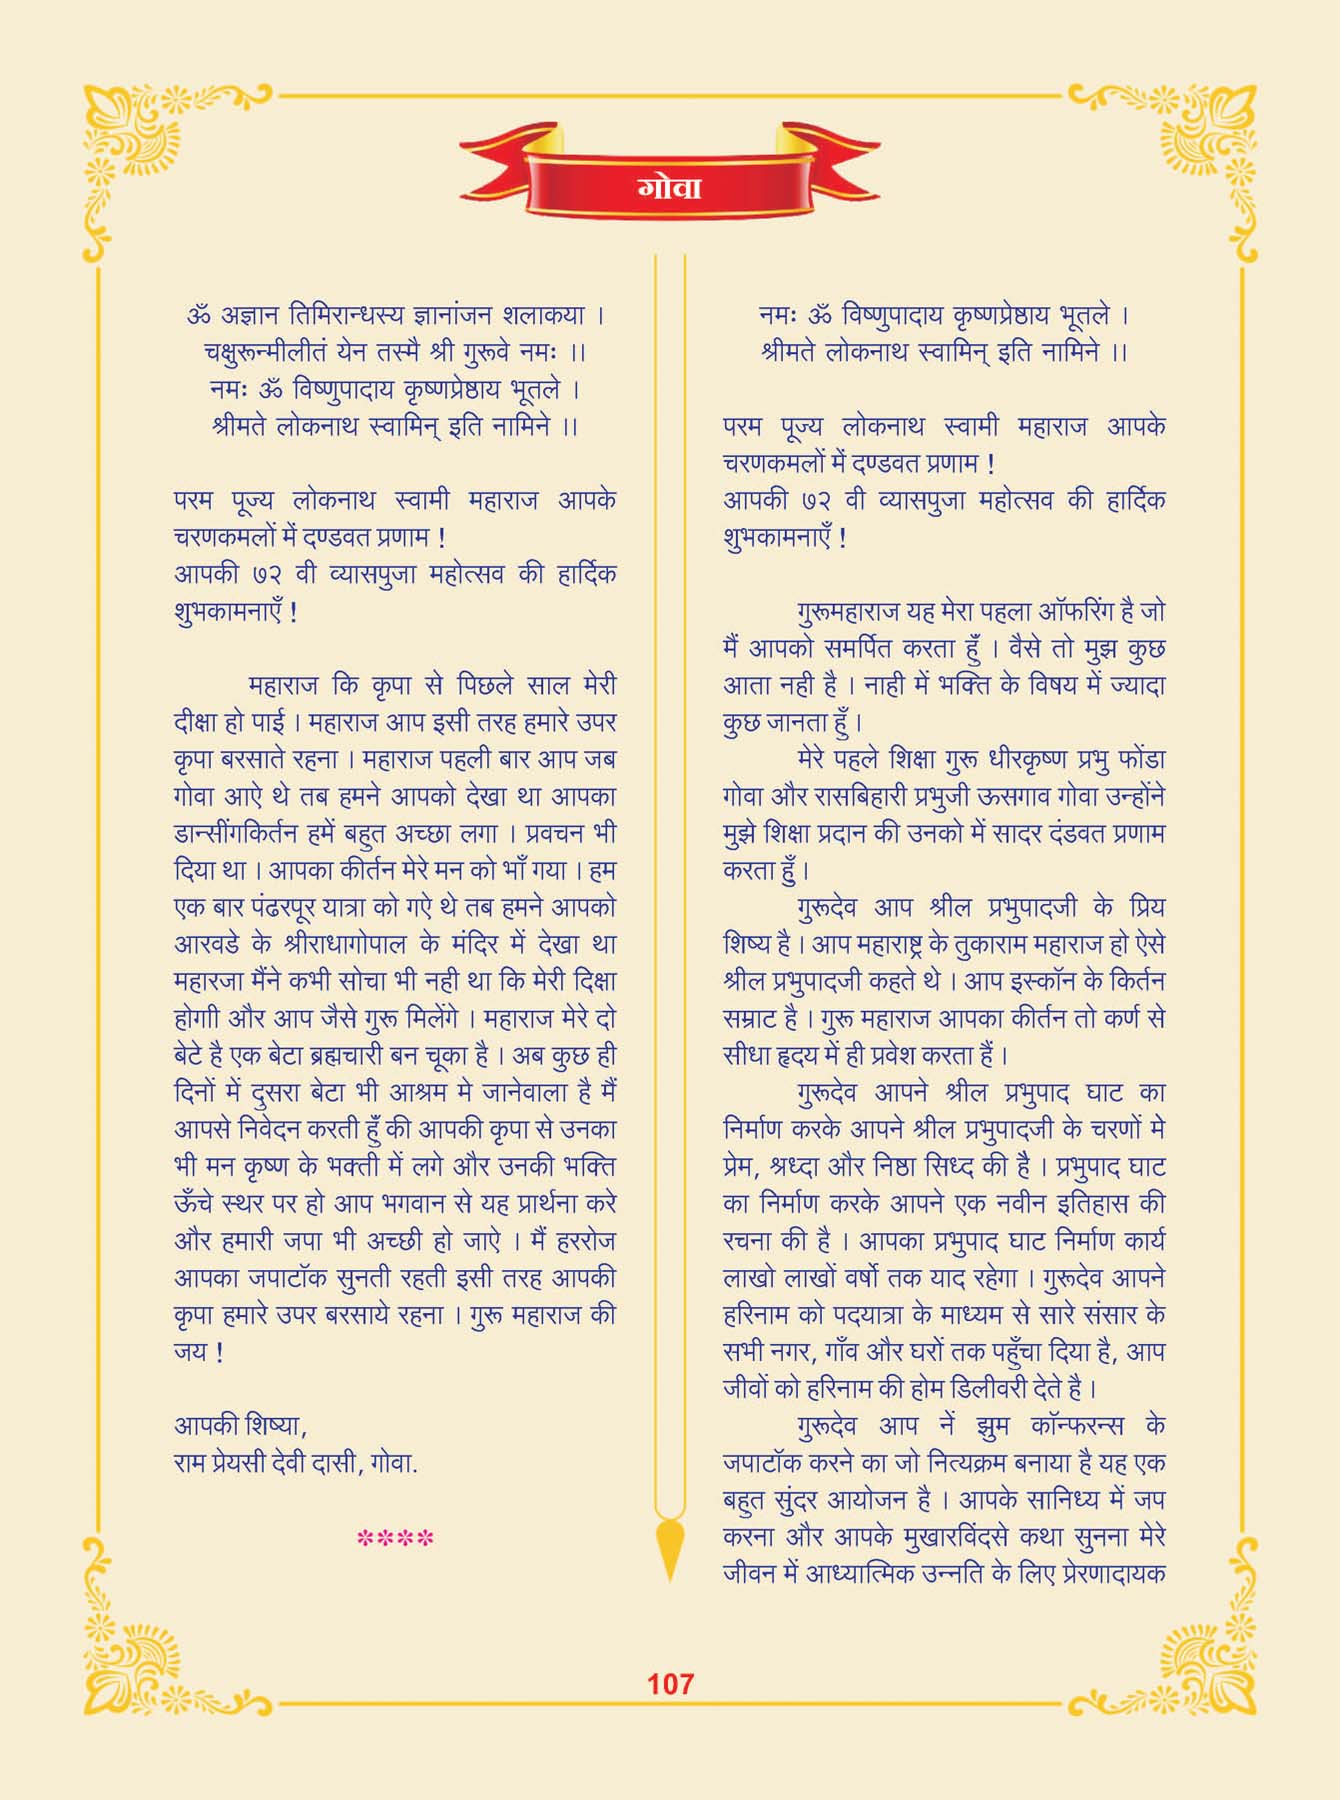 गोवा
ॐ अज्ञान तिमिरान्धस्य ज्ञानांजन शलाकया ।
चक्षुरून्मीलीतं येन तस्मै श्री गुरूवे नमः ।।
नमः ॐ विष्णुपादाय कृष्णप्रेष्ठाय भूतले ।
श्रीमते लोकनाथ स्वामिन् इति नामिने ।।
परम पूज्य लोकनाथ स्वामी महाराज आपके
चरणकमलों में दण्डवत प्रणाम !
आपकी ७२ वी व्यासपुजा महोत्सव की हार्दिक
शुभकामनाएँ !
महाराज कि कृपा से पिछले साल मेरी
दीक्षा हो पाई । महाराज आप इसी तरह हमारे उपर
कृपा बरसाते रहना । महाराज पहली बार आप जब
गोवा आऐ थे तब हमने आपको देखा था आपका
डान्सींगकिर्तन हमें बहुत अच्छा लगा । प्रवचन भी
दिया था । आपका कीर्तन मेरे मन को भाँ गया । हम
एक बार पंढरपूर यात्रा को गऐ थे तब हमने आपको
आरवडे के श्रीराधागोपाल के मंदिर में देखा था
महारजा मैंने कभी सोचा भी नही था कि मेरी दिक्षा
होगाी और आप जैसे गुरू मिलेंगे । महाराज मेरे दो
बेटे है एक बेटा ब्रह्मचारी बन चूका है । अब कुछ ही
दिनों में दुसरा बेटा भी आश्रम मे जानेवाला है मैं
आपसे निवेदन करती हुँ की आपकी कृपा से उनका
भी मन कृष्ण के भक्ती में लगे और उनकी भक्ति
ऊँचे स्थर पर हो आप भगवान से यह प्रार्थना करे
और हमारी जपा भी अच्छी हो जाऐ । मैं हररोज
आपका जपाटॉक सुनती रहती इसी तरह आपकी
कृपा हमारे उपर बरसाये रहना । गुरू महाराज की
जय !
आपकी शिष्या,
राम प्रेयसी देवी दासी, गोवा.
****
नमः ॐ विष्णुपादाय कृष्णप्रेष्ठाय भूतले ।
श्रीमते लोकनाथ स्वामिन् इति नामिने ।।
परम पूज्य लोकनाथ स्वामी महाराज आपके
चरणकमलों में दण्डवत प्रणाम !
आपकी ७२ वी व्यासपुजा महोत्सव की हार्दिक
शुभकामनाएँ !
गुरूमहाराज यह मेरा पहला ऑफरिंग है जो
मैं आपको समर्पित करता हुँ । वैसे तो मुझ कुछ
आता नही है । नाही में भक्ति के विषय में ज्यादा
कुछ जानता हुँ ।
मेरे पहले शिक्षा गुरू धीरकृष्ण प्रभु फोंडा
गोवा और रासबिहारी प्रभुजी ऊसगाव गोवा उन्होंने
मुझे शिक्षा प्रदान की उनको में सादर दंडवत प्रणाम
करता हुँ ।
गुरूदेव आप श्रील प्रभुपादजी के प्रिय
शिष्य है । आप महाराष्ट्र के तुकाराम महाराज हो ऐसे
श्रील प्रभुपादजी कहते थे । आप इस्कॉन के किर्तन
सम्राट है । गुरू महाराज आपका कीर्तन तो कर्ण से
सीधा हृदय में ही प्रवेश करता हैं ।
गुरूदेव आपने श्रील प्रभुपाद घाट का
निर्माण करके आपने श्रील प्रभुपादजी के चरणों मे
प्रेम, श्रध्दा और निष्ठा सिध्द की है । प्रभुपाद घाट
का निर्माण करके आपने एक नवीन इतिहास की
रचना की है । आपका प्रभुपाद घाट निर्माण कार्य
लाखो लाखों वर्षो तक याद रहेगा । गुरूदेव आपने
हरिनाम को पदयात्रा के माध्यम से सारे संसार के
सभी नगर, गाँव और घरों तक पहुँचा दिया है, आप
जीवों को हरिनाम की होम डिलीवरी देते है ।
गुरूदेव आप नें झुम कॉन्फरन्स के
जपाटॉक करने का जो नित्यक्रम बनाया है यह एक
बहुत सुंदर आयोजन है । आपके सानिध्य में जप
करना और आपके मुखारविंदसे कथा सुनना मेरे
जीवन में आध्यात्मिक उन्नति के लिए प्रेरणादायक
107